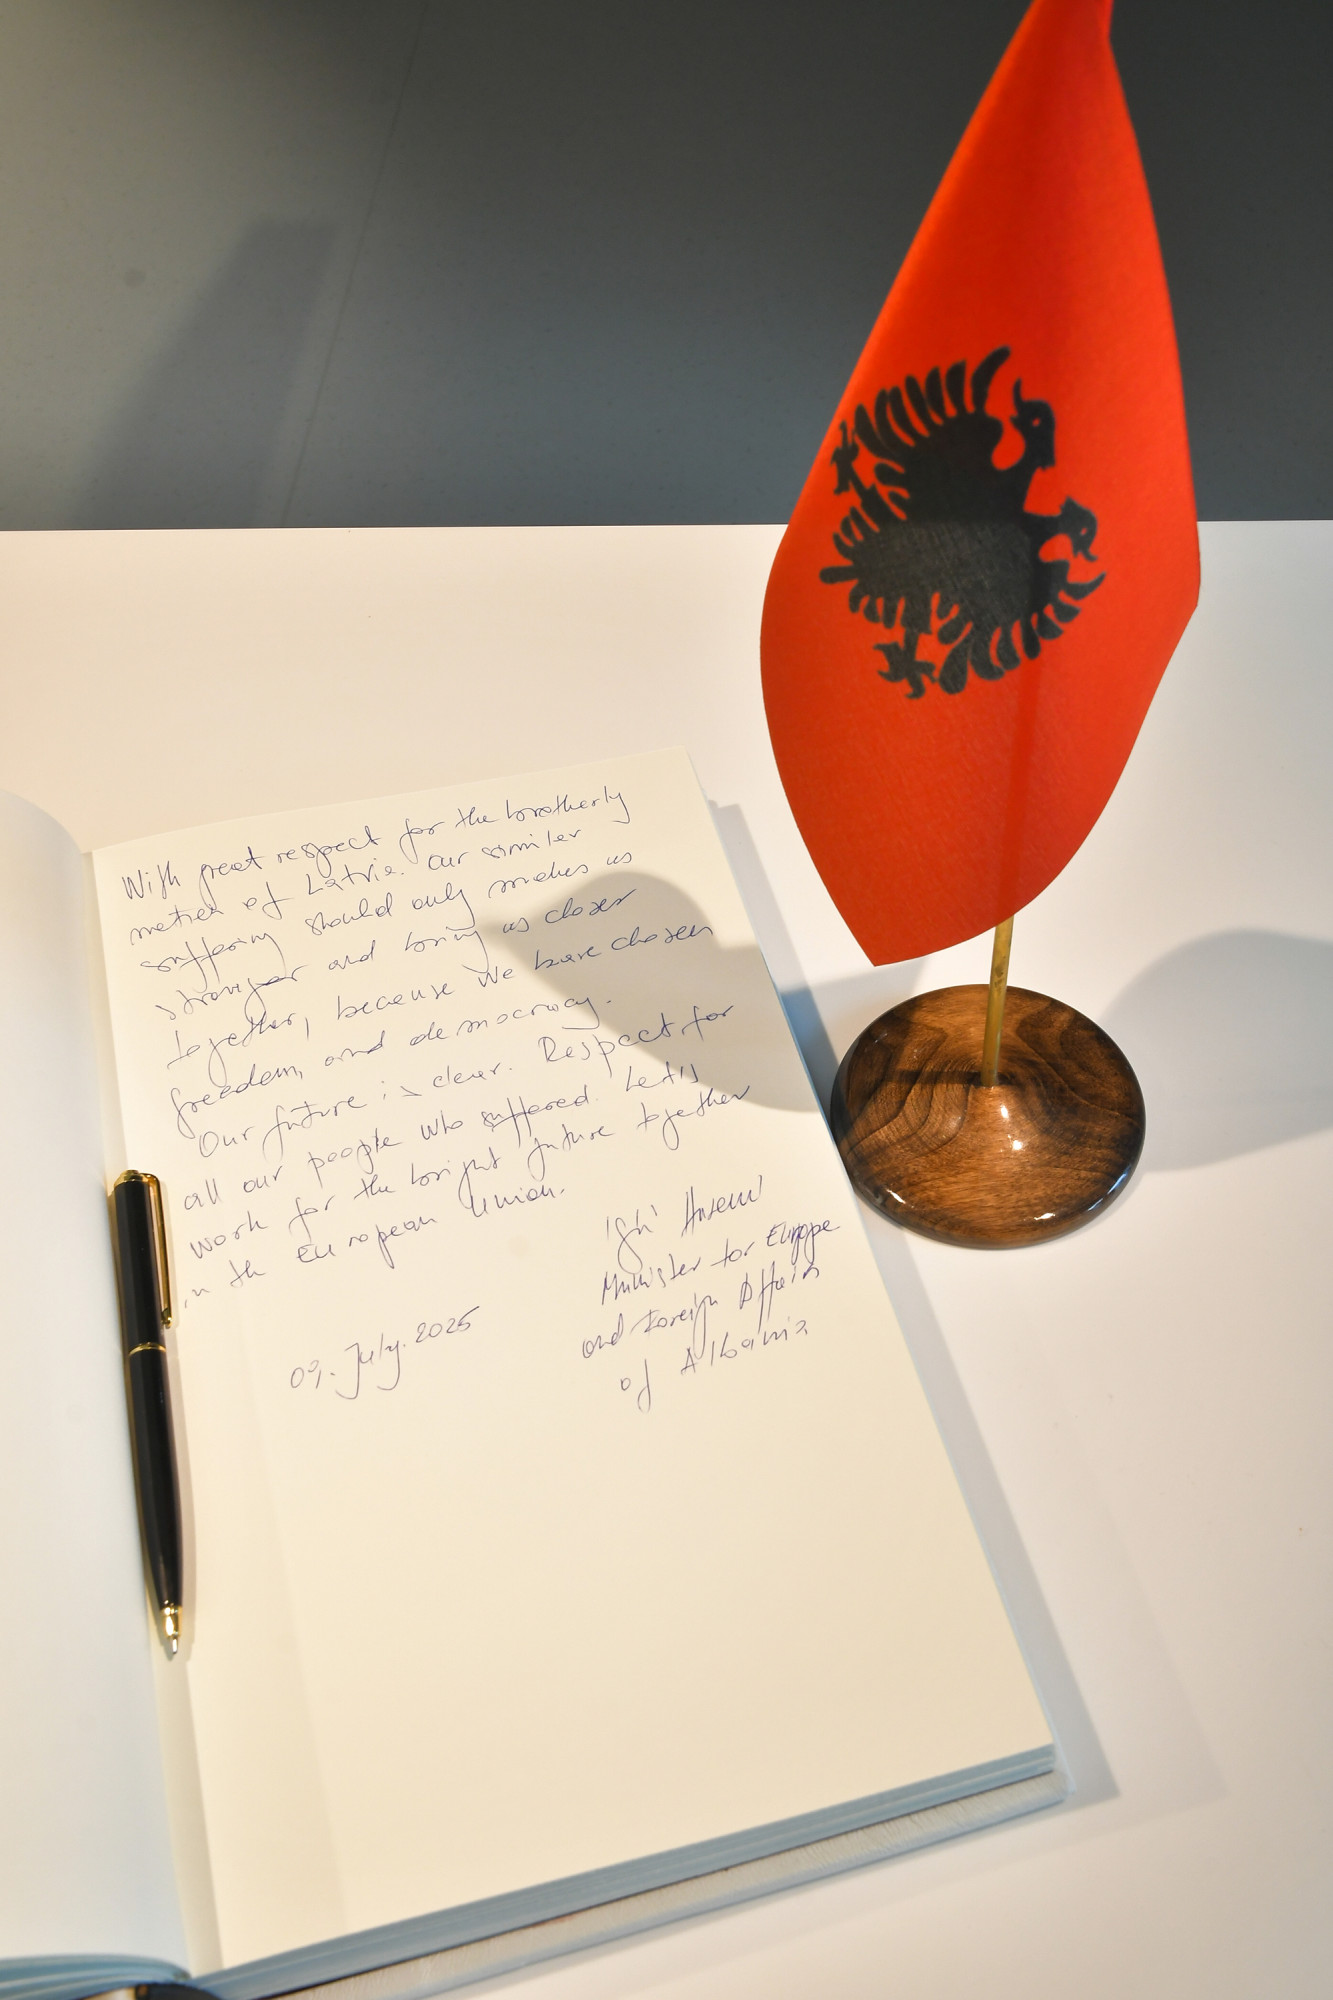 With great respect for the brotherly
nation of Latvia. Our similar
suffering should only makes us
stronger and bring us closer
together, because we have chosen
freedom, and democracy.
Our future is clear. Respect for
all our people who suffered. Let's
work for the bright future together
in the European Union.
Igli Hasani
Minister for Europe
and Foreign Affairs
of Albania
09. July. 2025